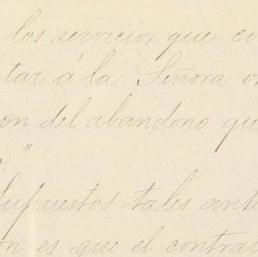 los servicios que co
tar á la Señora
ion del abandono qu
"
Supuestos tales ante
on es que el contra